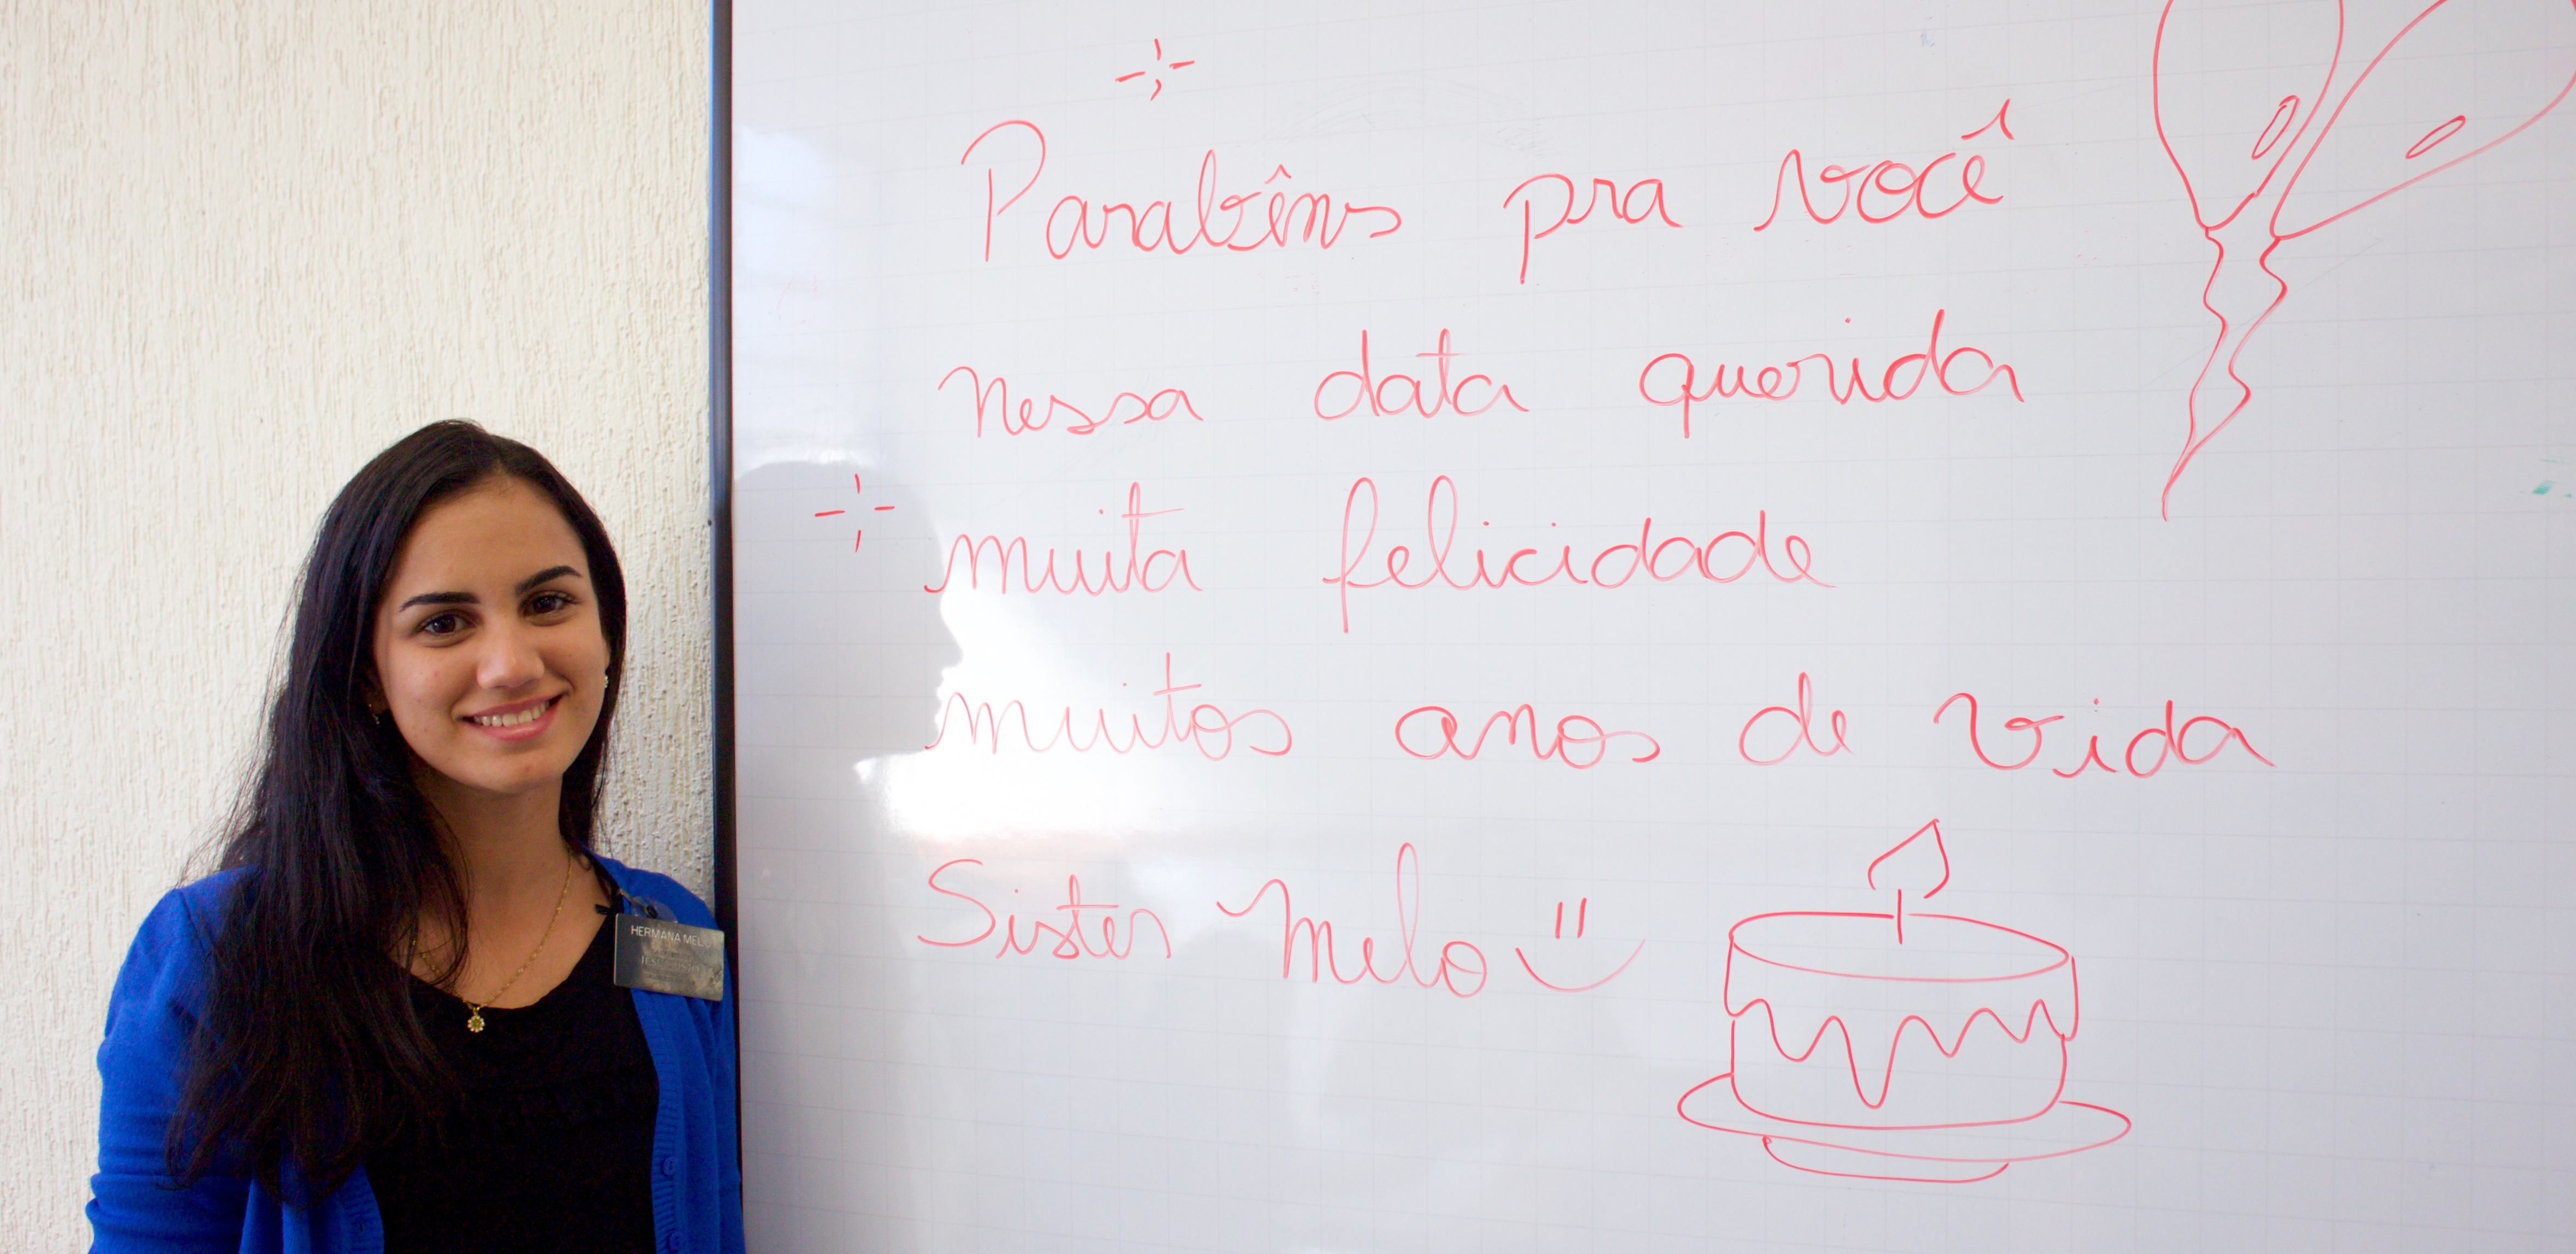 Parabêns pra você
nessa data querida
muita felicidade
muitos anos de vida
Sister Melo
HERMANA MEL